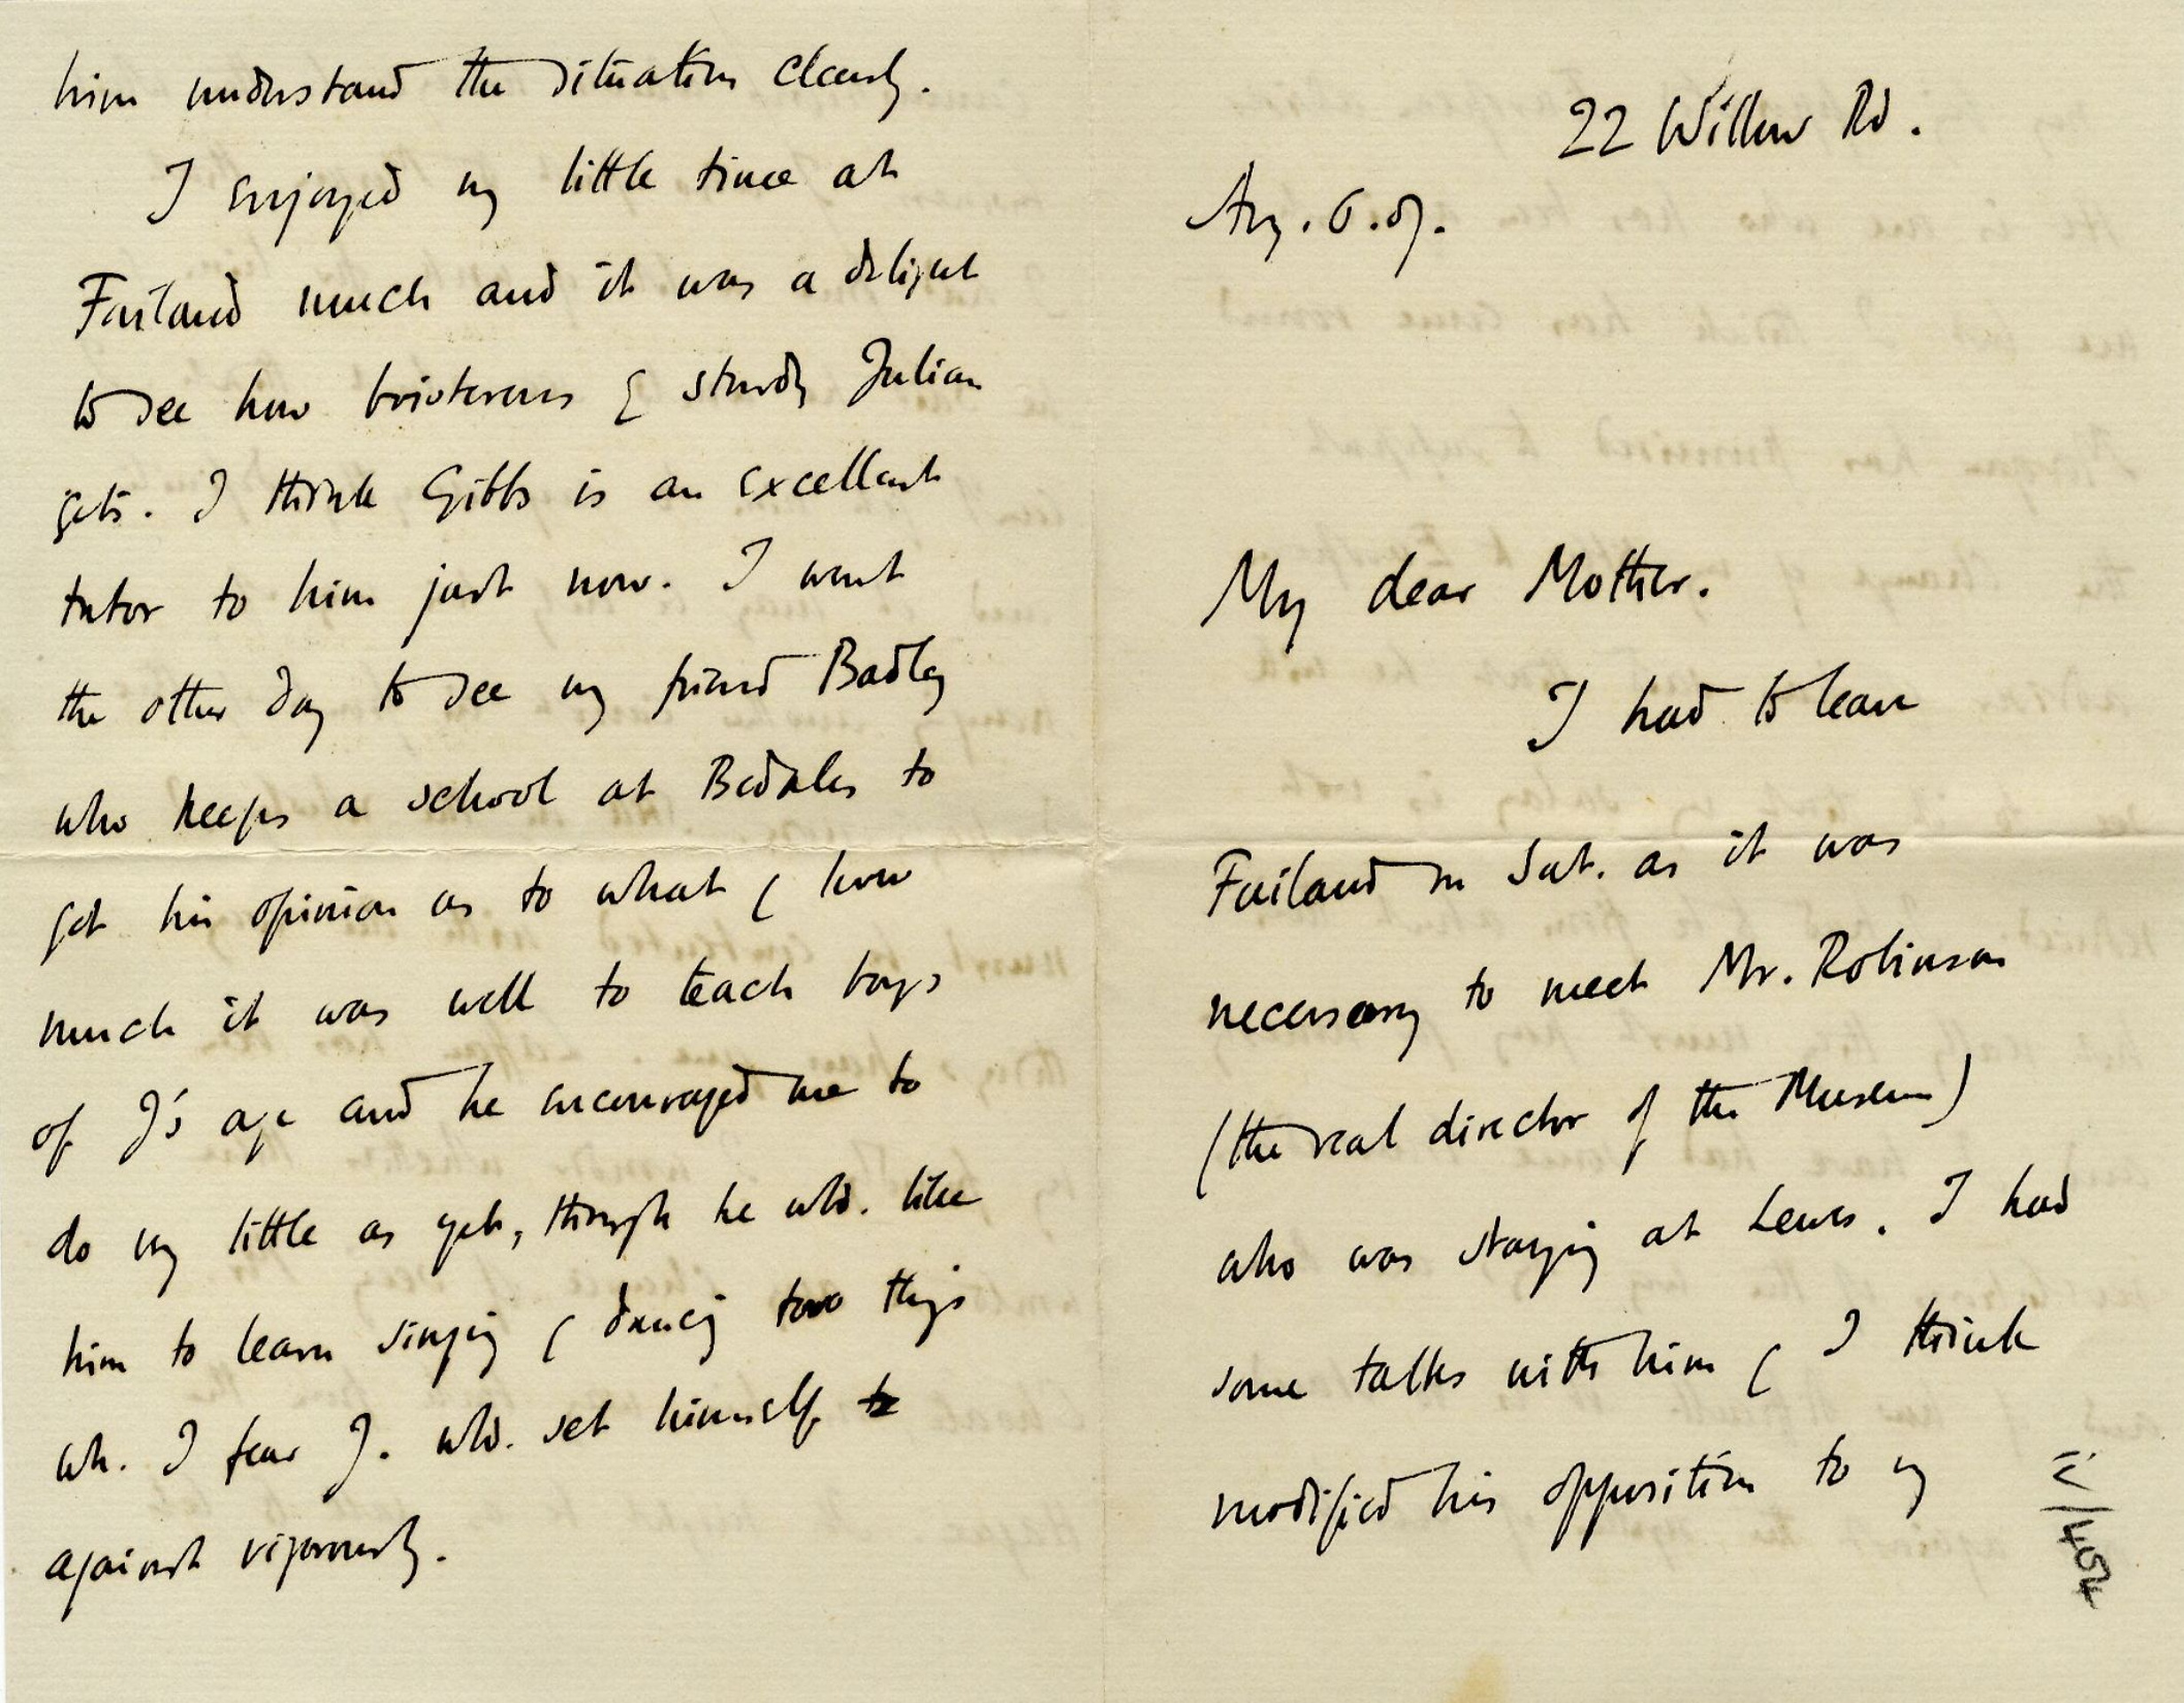 22 Willow Rd.
Aug. 6. 07.
My dear Mother.
I had to leave
Failand on Sat. as it was
necessary to meet Mr. Robinson
(the real director of the Museum)
who was staying at Lewes. I had
some talks with him & I think
modified his opposition to my
him understand the situation clearly.
I enjoyed my little time at
Failand much and it was a delight
to see how boisterous & sturdy Julian
gets. I think Gibbs is an excellent
tutor to him just now. I went
the other day to see my friend Badley
who keeps a school at Bedales to
get his opinion as to what & how
much it was well to teach boys
of J's age and he encouraged me to
do vy little as yet, though he wld. like
him to learn singing & dancing two things
wh. I fear J. wld. set himself
against vigorously.